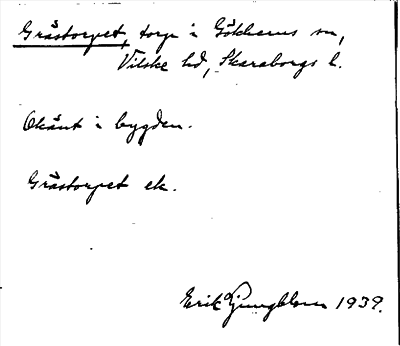 Gråstorpet, torp i Gökhems sn,
Vilske hd, Skaraborgs l.
Okänt i bygden.
Gråstorpet ek.
Erik Ljungblom 1939.